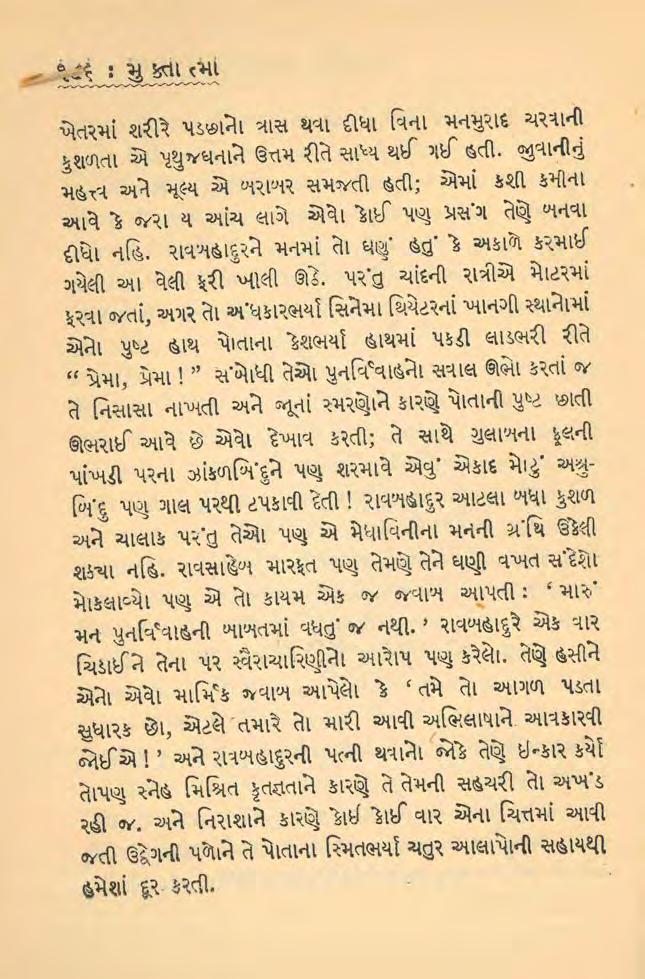 ૧૮૬ : મુ ક્તા ત્મા
ખેતરમાં શરીરે પડછાનો ત્રાસ થવા દીધા વિના મનમુરાદ ચરવાની
કુશળતા એ પૃથુજઘનાને ઉત્તમ રીતે સાધ્ય થઈ ગઈ હતી. જુવાનીનું
મહત્ત્વ અને મૂલ્ય એ બરાબર સમજતી હતી; એમાં કશી કમીના
આવે કે જરા ય આંચ લાગે એવો કોઈ પણ પ્રસંગ તેણે બનવા
દીધો નહિ. રાવબહાદુરને મનમાં તો ઘણું હતું કે અકાળે કરમાઈ
ગયેલી આ વેલી ફરી ખીલી ઊઠે. પરંતુ ચાંદની રાત્રીએ મોટરમાં
ફરવા જતાં, અગર તો અંધકારભર્યા સિનેમા થિયેટરનાં ખાનગી સ્થાનોમાં
એનો પુષ્ટ હાથ પોતાના કેશભર્યા હાથમાં પકડી લાડભરી રીતે
“ પ્રેમા, પ્રેમા ! ” સંબોધી તેઓ પુનર્વિવાહનો સવાલ ઊભો કરતાં જ
તે નિસાસા નાખતી અને જૂનાં સ્મરણોને કારણે પોતાની પુષ્ટ છાતી
ઊભરાઈ આવે છે એવો દેખાવ કરતી; તે સાથે ગુલાબના ફૂલની
પાંખડી પરના ઝાંકળબિંદુને પણ શરમાવે એવું એકાદ મોટું અશ્રુ-
બિંદુ પણ ગાલ પરથી ટપકાવી દેતી ! રાવબહાદુર આટલા બધા કુશળ
અને ચાલાક પરંતુ તેઓ પણ એ મેધાવિનીના મનની ગ્રંથિ ઉકેલી
શક્યા નહિ. રાવસાહેબ મારફત પણ તેમણે તેને ઘણી વખત સંદેશો
મોકલાવ્યો પણ એ તો કાયમ એક જ જવાબ આપતી : ‘ મારું
મન પુનર્વિવાહની બાબતમાં વધતું જ નથી. ’ રાવબહાદુરે એક વાર
ચિડાઈને તેના પર સ્વૈરાચારિણીનો આરોપ પણ કરેલો. તેણે હસીને
એનો એવો માર્મિક જવાબ આપેલો કે ‘ તમે તો આગળ પડતા
સુધારક છો, એટલે તમારે તો મારી આવી અભિલાષાને આવકારવી
જોઈએ ! ’ અને રાવબહાદુરની પત્ની થવાનો જોકે તેણે ઇન્કાર કર્યો
તોપણ સ્નેહ મિશ્રિત કૃતજ્ઞતાને કારણે તે તેમની સહચરી તો અખંડ
રહી જ. અને નિરાશાને કારણે કોઈ કોઈ વાર એના ચિત્તમાં આવી
જતી ઉદ્વેગની પળોને તે પોતાના સ્મિતભર્યા ચતુર આલાપોની સહાયથી
હમેશાં દૂર કરતી.